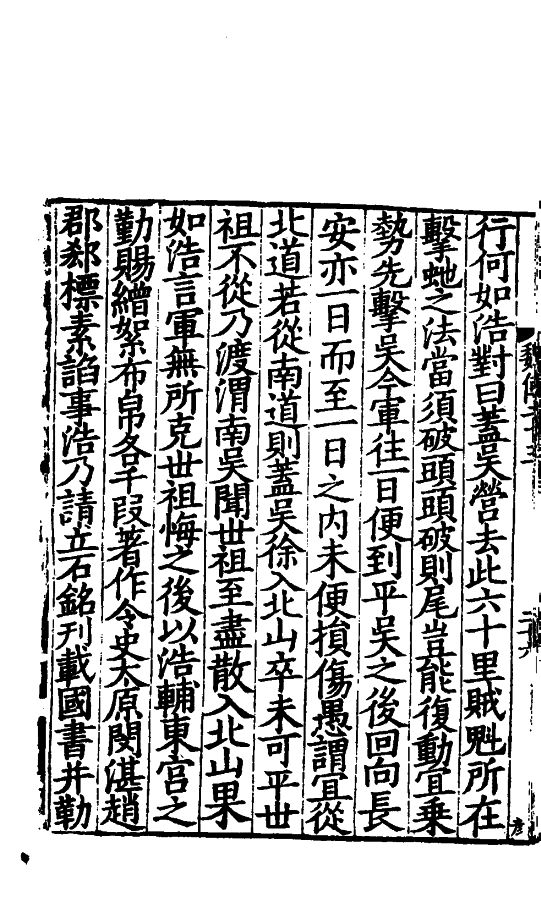 行何如浩對曰蓋吳營去此六十里賊魁所在
擊虵之法當須破頭頭破則尾豈能復動宜乗
勢先擊吳今軍往一日便到平吳之後回向長
安亦一日而至一日之内未便損傷愚謂宜從
北道若從南道則蓋吳徐入北山卒未可平世
祖不從乃渡渭南吳聞世祖至盡散入北山果
如浩言軍無所克世祖悔之後以浩輔東宮之
勤賜繒絮布帛各千段著作令史太原閔湛趙
郡郄標素諂事浩乃請立石銘刊載國書并勒